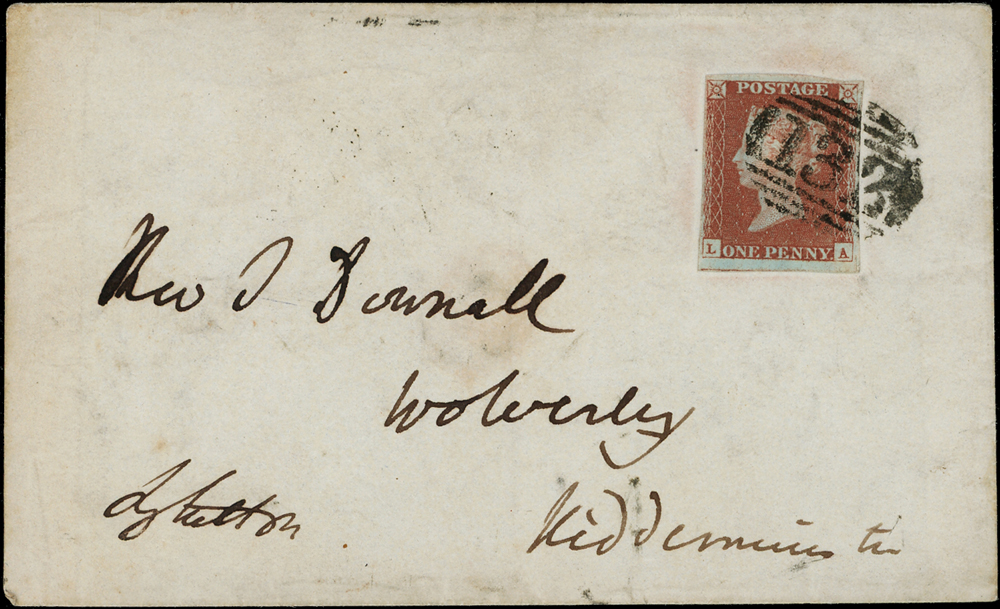 POSTAGE
132
L ONE PENNY. A
Rev J Downall
Wolverley
Lyttelton
Kidderminster